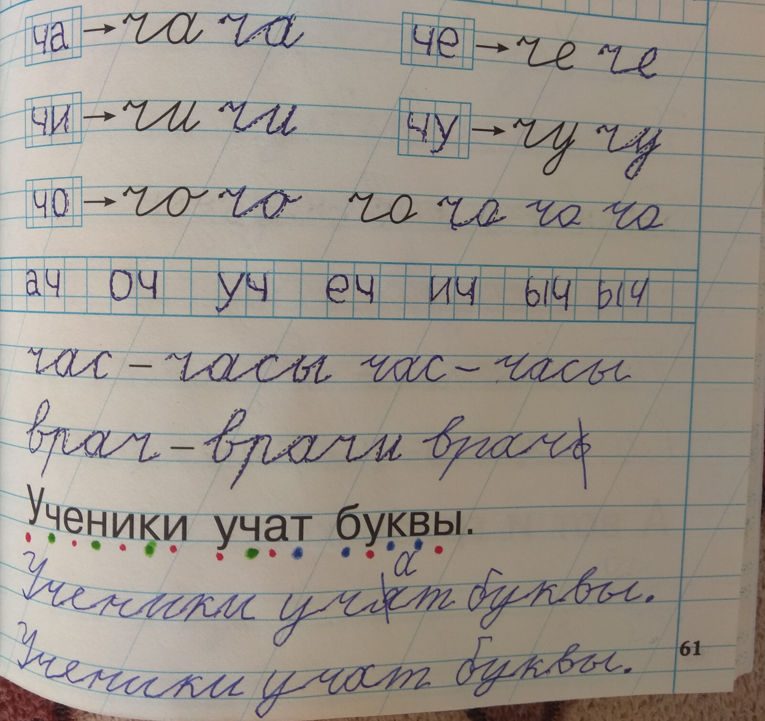 ча → ча ча че → че че
чи → чи чи чу → чу чу
чо → чо чо чо чо чо чо
ач оч уч еч ич ыч ыч
час – часы час – часы
врач – врачи врач
Ученики учат буквы.
а
Ученики учат буквы.
Ученики учат буквы.
61